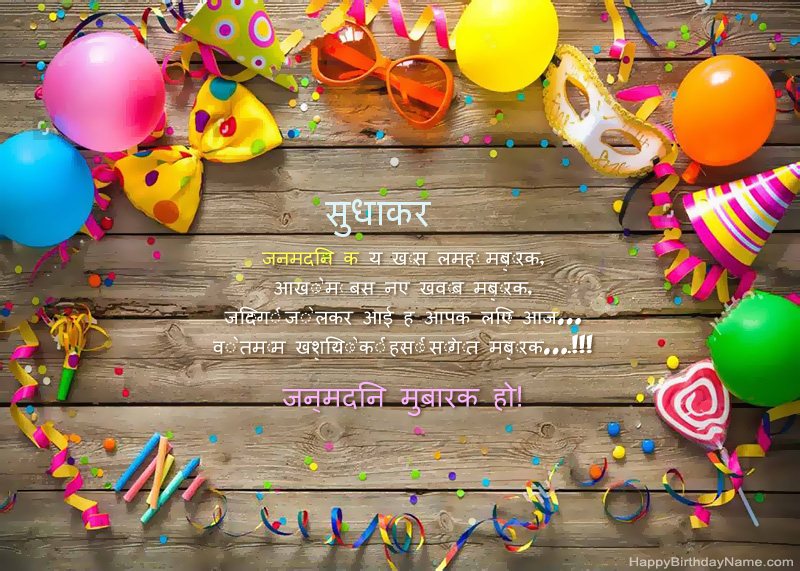 सुधाकर
जनमदनि क य खास लमहा मबारक,
आखों में बस नए खवाब मबारक,
जदिगी जो लेकर आई ह आपक लएि आज...
वो तमाम खुशयिों की हसीं सौगात मबारक...!!!
जन्मदनि मुबारक हो!
HappyBirthdayName.com